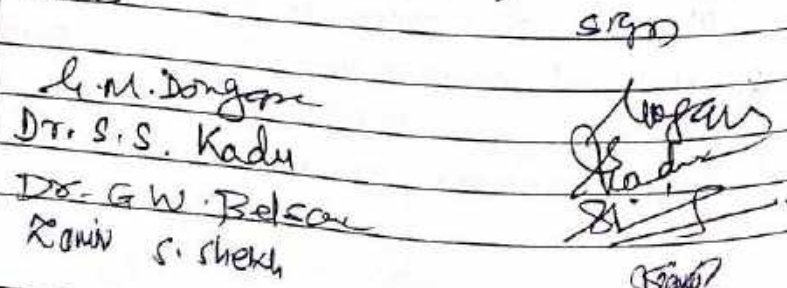 Sign
G.M. Dongare
Dr. S.S. Kadu Kadu
Dr. G W. Belsare
Zamir S. Sheikh